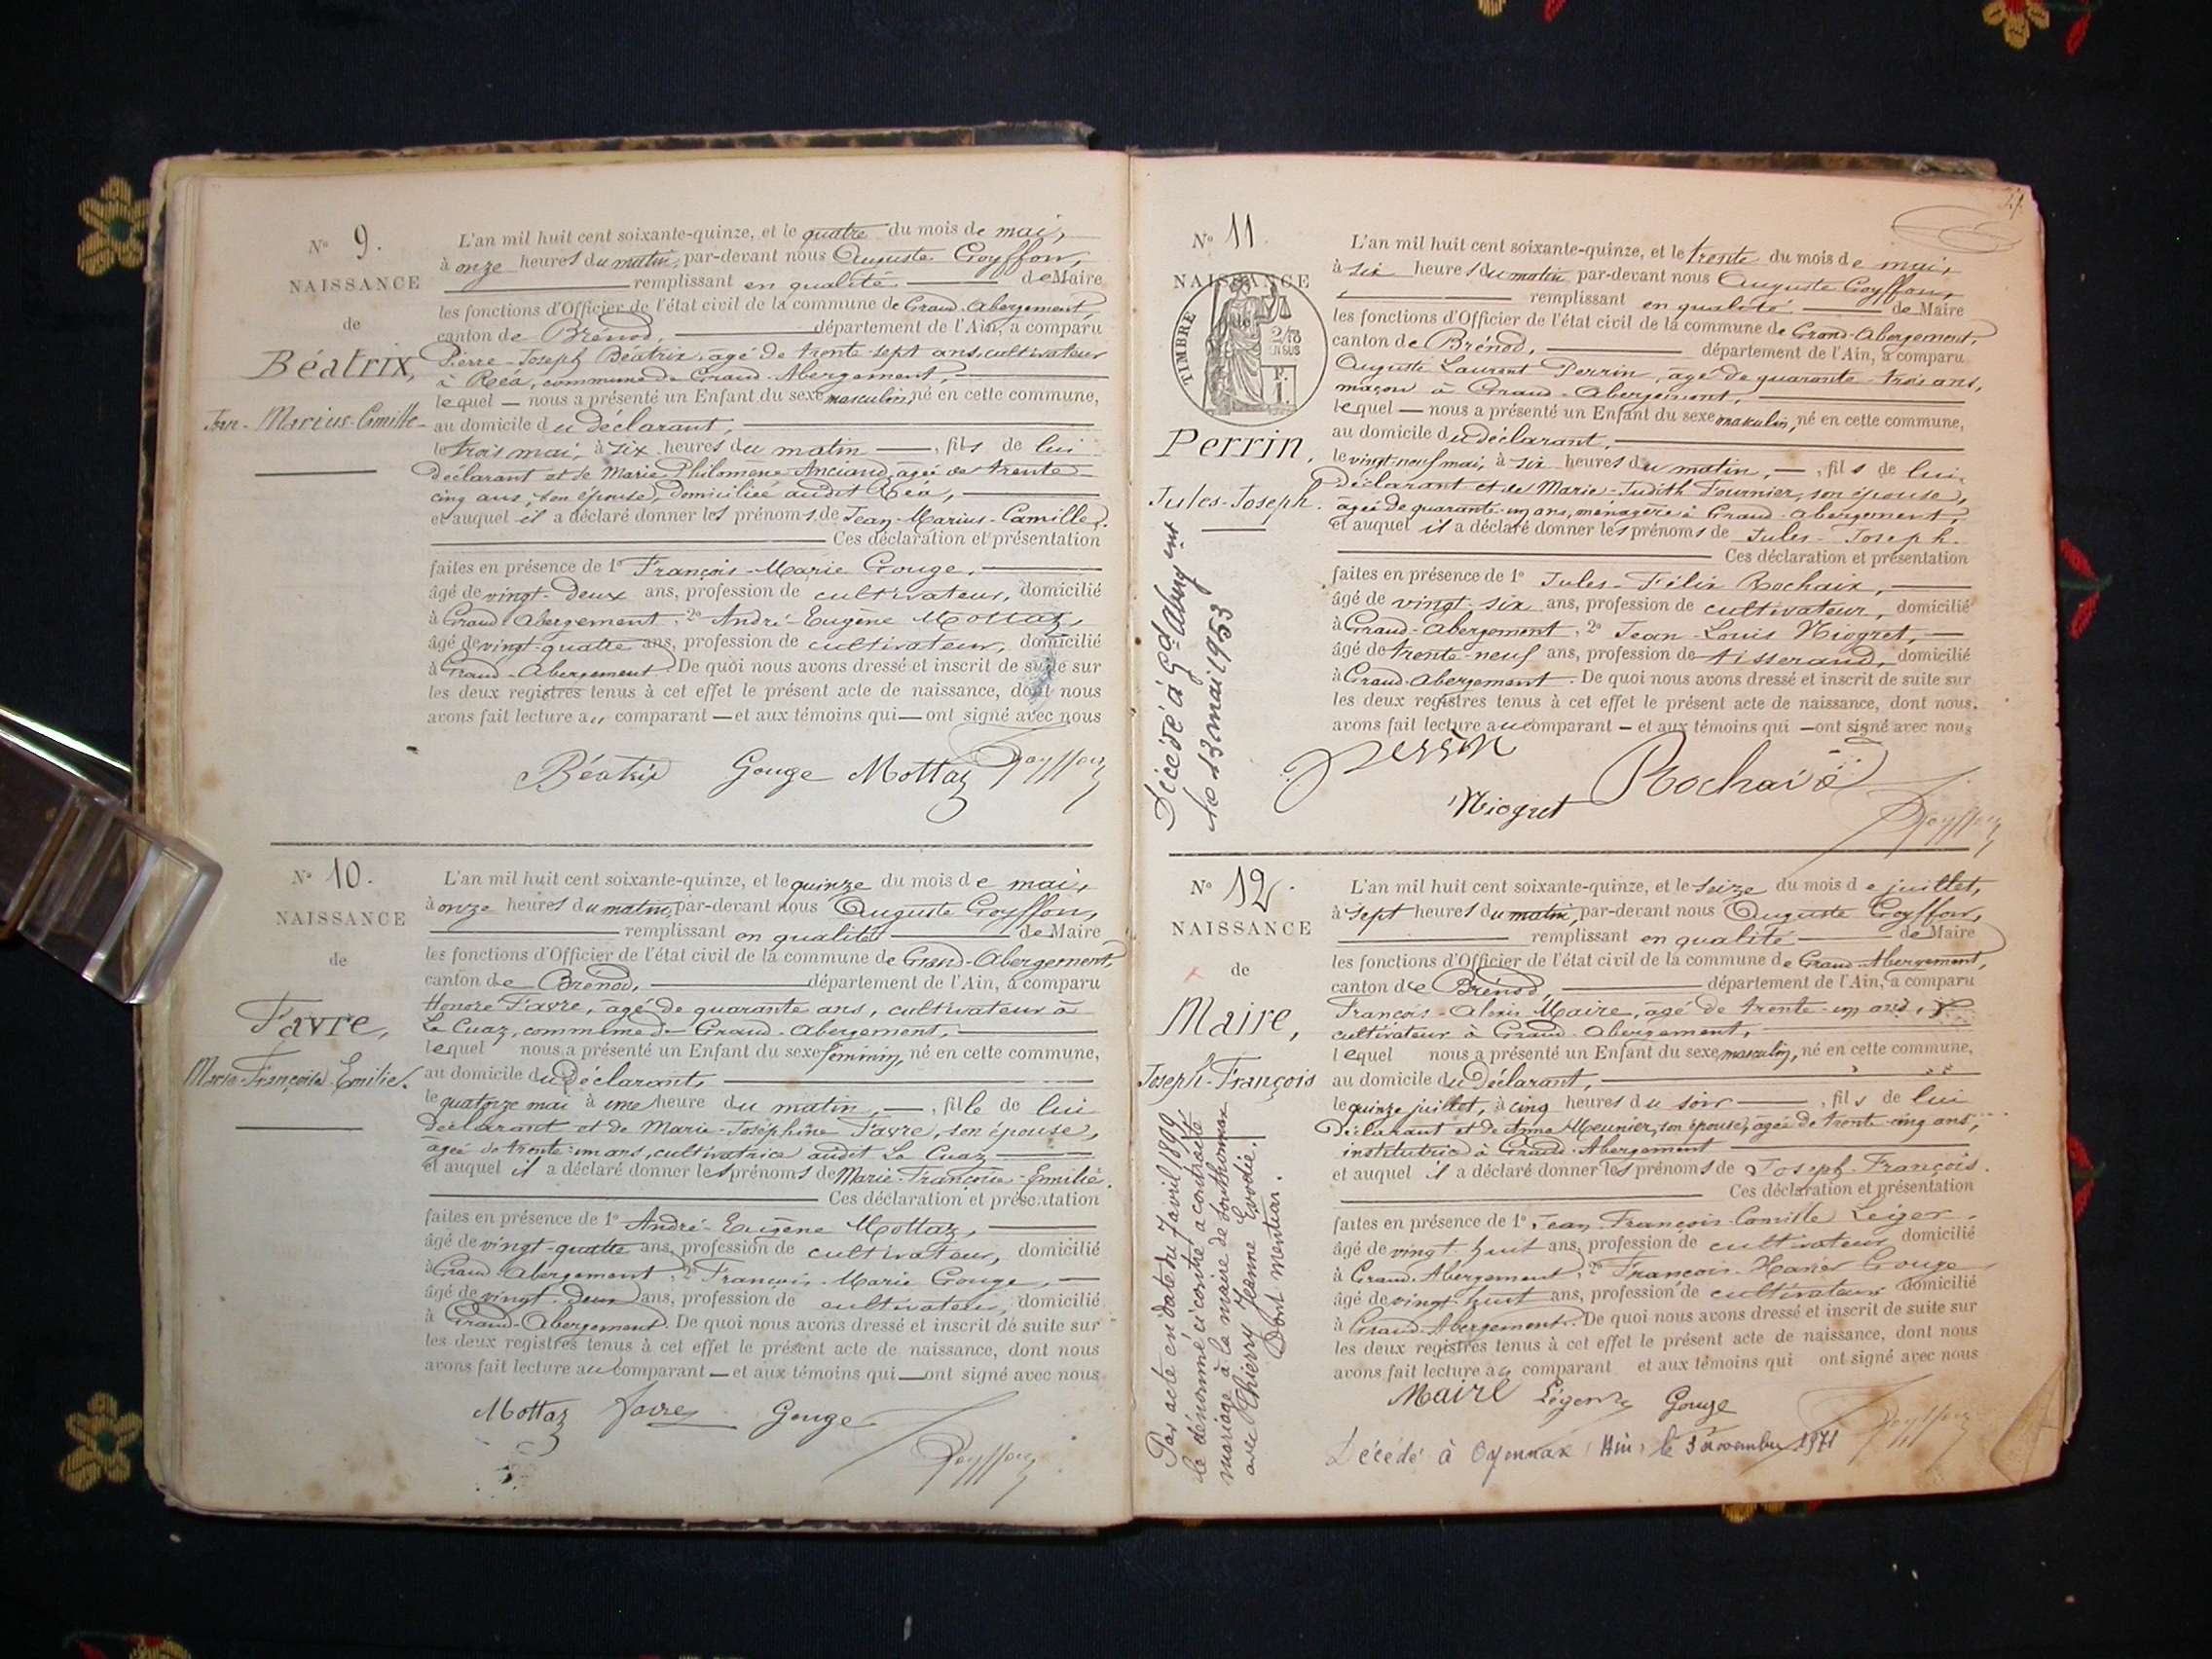 N° 9.
NAISSANCE
de
Béatrix,
Jean-Marius-Camille
L'an mil huit cent soixante-quinze, et le quatre du mois de mai,
à onze heures du matin, par-devant nous Auguste Goyffon,
remplissant en qualité de Maire
les fonctions d'Officier de l'état civil de la commune de Grand-Abergement,
canton de Brénod, département de l'Ain, a comparu
Pierre-Joseph Béatrix, âgé de trente-sept ans, cultivateur
à Réa, commune de Grand-Abergement,
lequel — nous a présenté un Enfant du sexe masculin, né en cette commune,
au domicile du déclarant,
le trois mai, à six heures du matin —, fils de lui
déclarant et de Marie-Philomène Anciand, âgée de trente-
cinq ans, son épouse, domiciliée audit Réa,
et auquel il a déclaré donner les prénoms de Jean-Marius-Camille.
Ces déclaration et présentation
faites en présence de 1° François-Marie Gouge,
âgé de vingt-deux ans, profession de cultivateur, domicilié
à Grand-Abergement, 2° André-Eugène Mottaz,
âgé de vingt-quatre ans, profession de cultivateur, domicilié
à Grand-Abergement. De quoi nous avons dressé et inscrit de suite sur
les deux registres tenus à cet effet le présent acte de naissance, dont nous
avons fait lecture au comparant — et aux témoins qui — ont signé avec nous
Béatrix Gouge Mottaz Goyffon
N° 10.
NAISSANCE
de
Favre,
Marie-Françoise-Emilie.
L'an mil huit cent soixante-quinze, et le quinze du mois de mai,
à onze heures du matin, par-devant nous Auguste Goyffon,
remplissant en qualité de Maire
les fonctions d'Officier de l'état civil de la commune de Grand-Abergement,
canton de Brénod, département de l'Ain, a comparu
Honoré Favre, âgé de quarante ans, cultivateur à
Le Cuaz, commune de Grand-Abergement,
lequel nous a présenté un Enfant du sexe féminin, né en cette commune,
au domicile du Déclarant,
le quatorze mai à une heure du matin, —, fille de lui
déclarant et de Marie-Joséphine Favre, son épouse,
âgée de trente-un ans, cultivatrice audit Le Cuaz
et auquel il a déclaré donner les prénoms de Marie-Françoise-Emilie.
Ces déclaration et présentation
faites en présence de 1° André-Eugène Mottaz,
âgé de vingt-quatre ans, profession de cultivateur, domicilié
à Grand-Abergement, 2° François-Marie Gouge, —
âgé de vingt-deux ans, profession de cultivateur, domicilié
à Grand-Abergement. De quoi nous avons dressé et inscrit de suite sur
les deux registres tenus à cet effet le présent acte de naissance, dont nous
avons fait lecture au comparant — et aux témoins qui — ont signé avec nous
Mottaz favre Gouge
Goyffon
N° 11.
NAISSANCE
TIMBRE
2/10
EN SUS
Perrin,
Jules-Joseph.
Décédé à Gd Aberg ent
le 13 mai 1953
L'an mil huit cent soixante-quinze, et le trente du mois de mai,
à six heures du matin, par-devant nous Auguste Goyffon,
remplissant en qualité de Maire
les fonctions d'Officier de l'état civil de la commune de Grand-Abergement,
canton de Brénod, département de l'Ain, a comparu
Auguste Laurent Perrin, âgé de quarante-trois ans,
maçon à Grand-Abergement,
lequel — nous a présenté un Enfant du sexe masculin, né en cette commune,
au domicile du déclarant,
le vingt-neuf mai, à six heures du matin, —, fils de lui
Déclarant et de Marie-Judith Fournier, son épouse,
âgée de quarante-un ans, ménagère à Grand-Abergement,
et auquel il a déclaré donner les prénoms de Jules-Joseph.
Ces déclaration et présentation
faites en présence de 1° Jules-Félix Rochaix,
âgé de vingt-six ans, profession de cultivateur, domicilié
à Grand-Abergement, 2° Jean-Louis Niogret, —
âgé de trente-neuf ans, profession de tisserand, domicilié
à Grand-Abergement. De quoi nous avons dressé et inscrit de suite sur
les deux registres tenus à cet effet le présent acte de naissance, dont nous
avons fait lecture au comparant — et aux témoins qui — ont signé avec nous
Perrin
Niogret Rochaix
Goyffon
N° 12.
NAISSANCE
de
Maire,
Joseph-François
Par acte en date du 7 avril 1899
le dénommé ci contre a contracté
mariage à la mairie de
avec Thierry Jeanne Evodie.
Dont mention.
L'an mil huit cent soixante-quinze, et le seize du mois de juillet,
à sept heures du matin, par-devant nous Auguste Goyffon,
remplissant en qualité de Maire
les fonctions d'Officier de l'état civil de la commune de Grand-Abergement,
canton de Brénod, département de l'Ain, a comparu
François-Alexis Maire, âgé de trente-un ans,
cultivateur à Grand-Abergement,
lequel nous a présenté un Enfant du sexe masculin, né en cette commune,
au domicile du Déclarant,
le quinze juillet, à cinq heures du soir —, fils de lui
Déclarant et de Anna Meunier, son épouse, âgée de trente-cinq ans,
institutrice à Grand-Abergement
et auquel il a déclaré donner les prénoms de Joseph-François.
Ces déclaration et présentation
faites en présence de 1° Jean-François-Camille Léger,
âgé de vingt-huit ans, profession de cultivateur domicilié
à Grand-Abergement, 2° François-Xavier Gouge
âgé de vingt-huit ans, profession de cultivateur domicilié
à Grand-Abergement. De quoi nous avons dressé et inscrit de suite sur
les deux registres tenus à cet effet le présent acte de naissance, dont nous
avons fait lecture au comparant et aux témoins qui ont signé avec nous
Maire Léger Gouge
Goyffon
Décédé à Oyonnax (Ain) le 3 novembre 1971